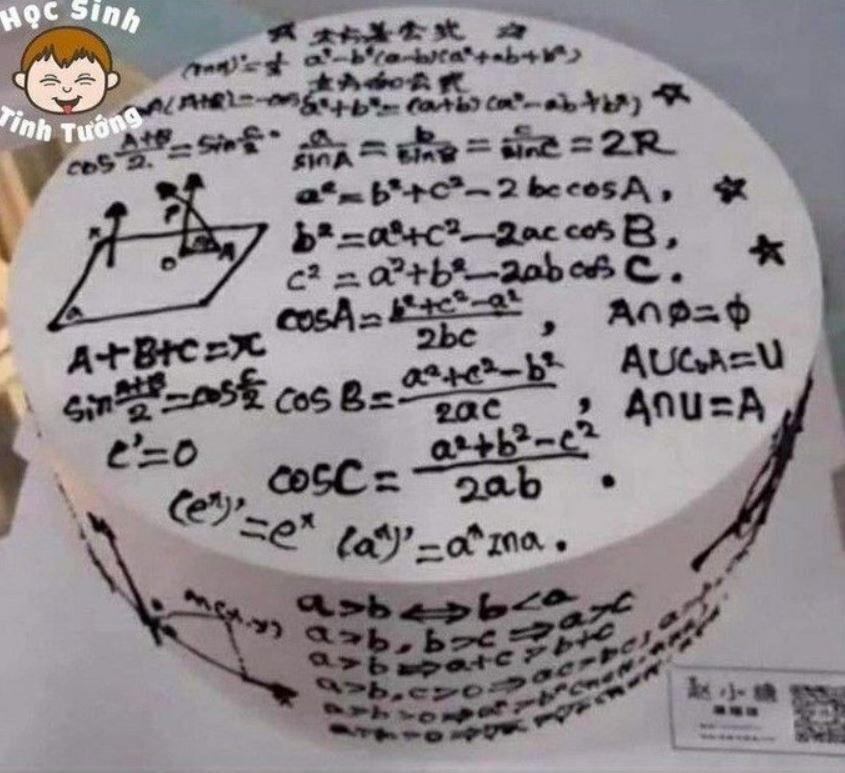 Học Sinh
Tinh Tướng
a³-b³(a-b)(a²+ab+b²)
a³+b³=(a+b)(a²-ab+b²)
cos A+B/2 = sin C/2
a/sinA = b/sinB = c/sinC = 2R
a²=b²+c²-2bccosA,
b²=a²+c²-2accosB,
c²=a²+b²-2abcosC.
cosA=b²+c²-a²/2bc,
A∩φ=φ
A+B+C=π
A∪CᵤA=U
sin A+B/2=cos C/2
cosB=a²+c²-b²/2ac,
A∩U=A
c'=0
cosC=a²+b²-c²/2ab.
(eˣ)'=eˣ
(aˣ)'=aˣlna.
M(x,y)
a>b⟺b<a
a>b,b>c⇒a>c
a>b⇒a+c>b+c
a>b,c>0⇒ac>bc,
赵小糖